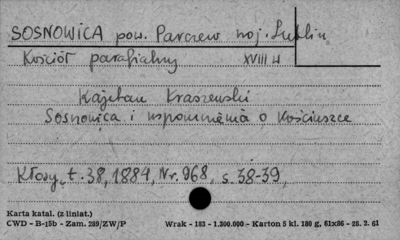 SOSNOWICA pow. Parczew woj. Lublin
Kościół parafialny XVIII w
Kajetan Kraszewski
Sosnowica i wspomnienia o Kościuszce
Kłosy, t. 38, 1884, Nr. 968, s. 38-39,
Karta katal. (z liniat.)
CWD - B-15b - Zam. 289/ZW/P Wrak - 183 - 1.300.000 - Karton 5 kl. 180 g, 61x86 - 28. 2. 61